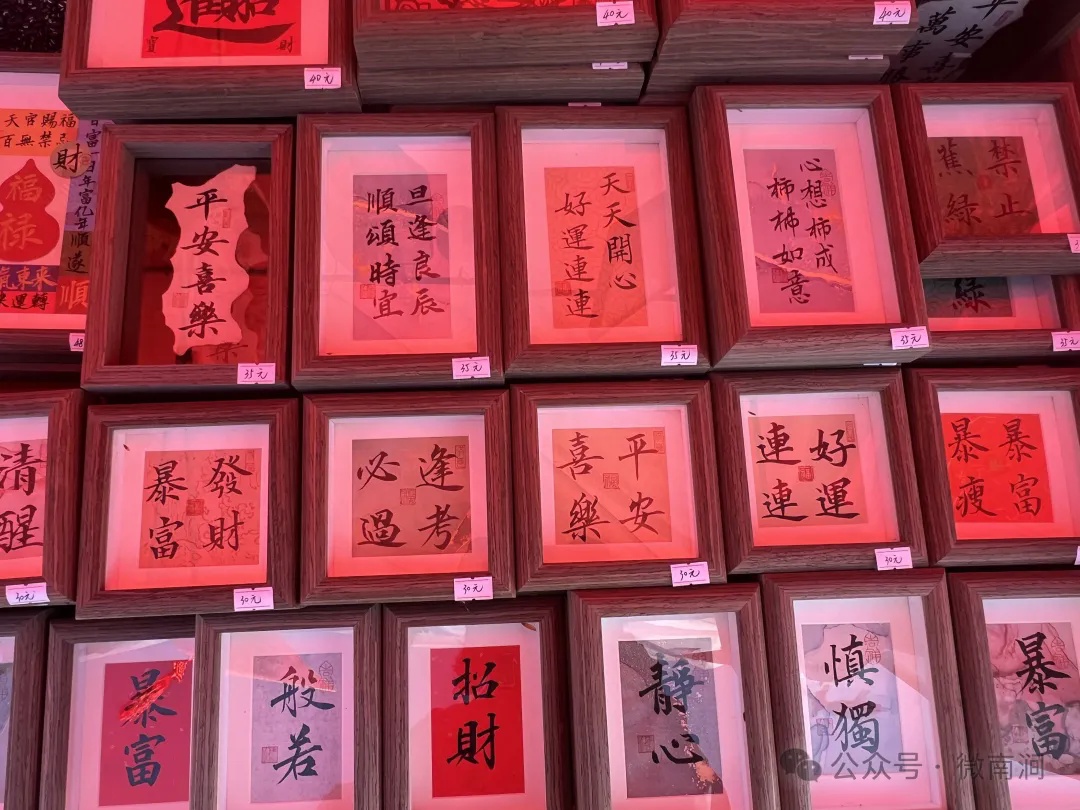 40元
40元
40元
平安
萬事
天官賜福
百無禁忌
財
日富一日年富亿年
順遂
福
禄
氣東来
来運轉
順
48
平安喜樂
35元
旦逢良辰
順頌時宜
35元
天天開心
好運連連
35元
心想柿成
柿柿如意
35元
禁止
蕉綠
綠
35元
清醒
30元
發財
暴富
30元
逢考
必過
30元
平安
喜樂
30元
好運
連連
30元
暴富
暴瘦
暴富
般若
招財
靜心
慎獨
暴富
公众号 · 微南涧